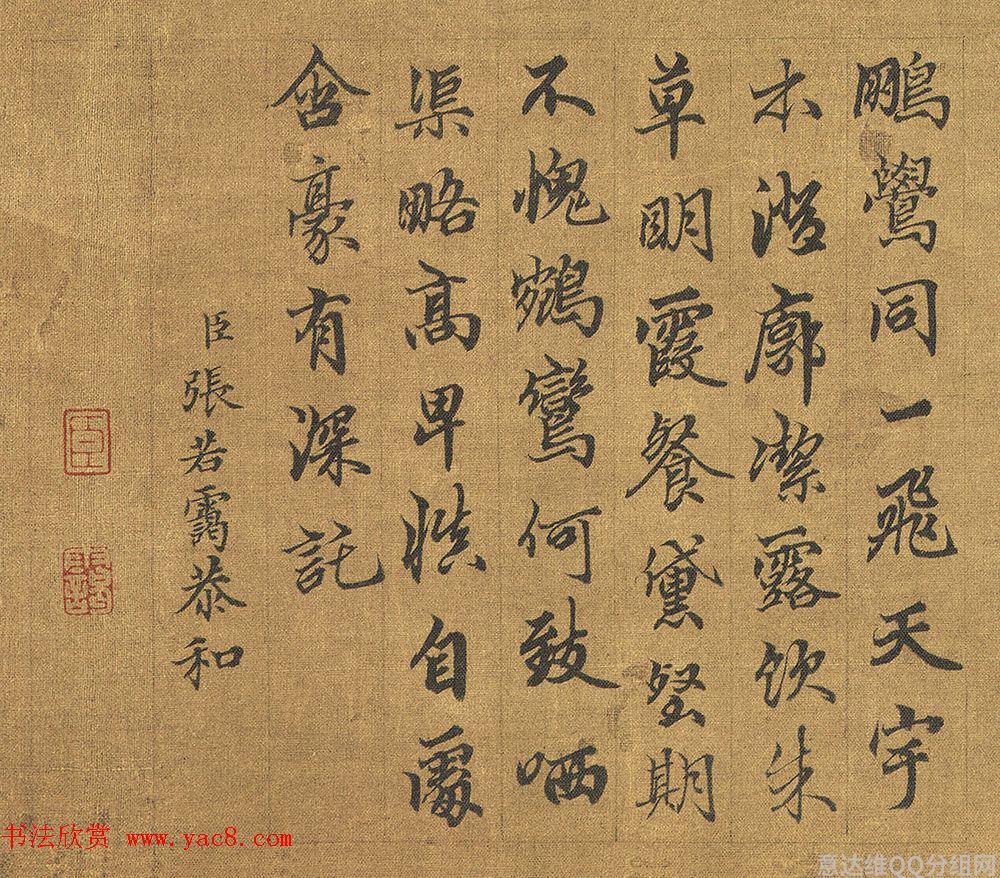 鵬鷽同一飛天宇
本澄廓潔露飲朱
草明霞餐黛壑期
不愧鵷鸞何致哂
渠略高卑慎自處
含豪有深託
臣張若靄恭和
书法欣赏 www.yac8.com
意达维QQ分组网